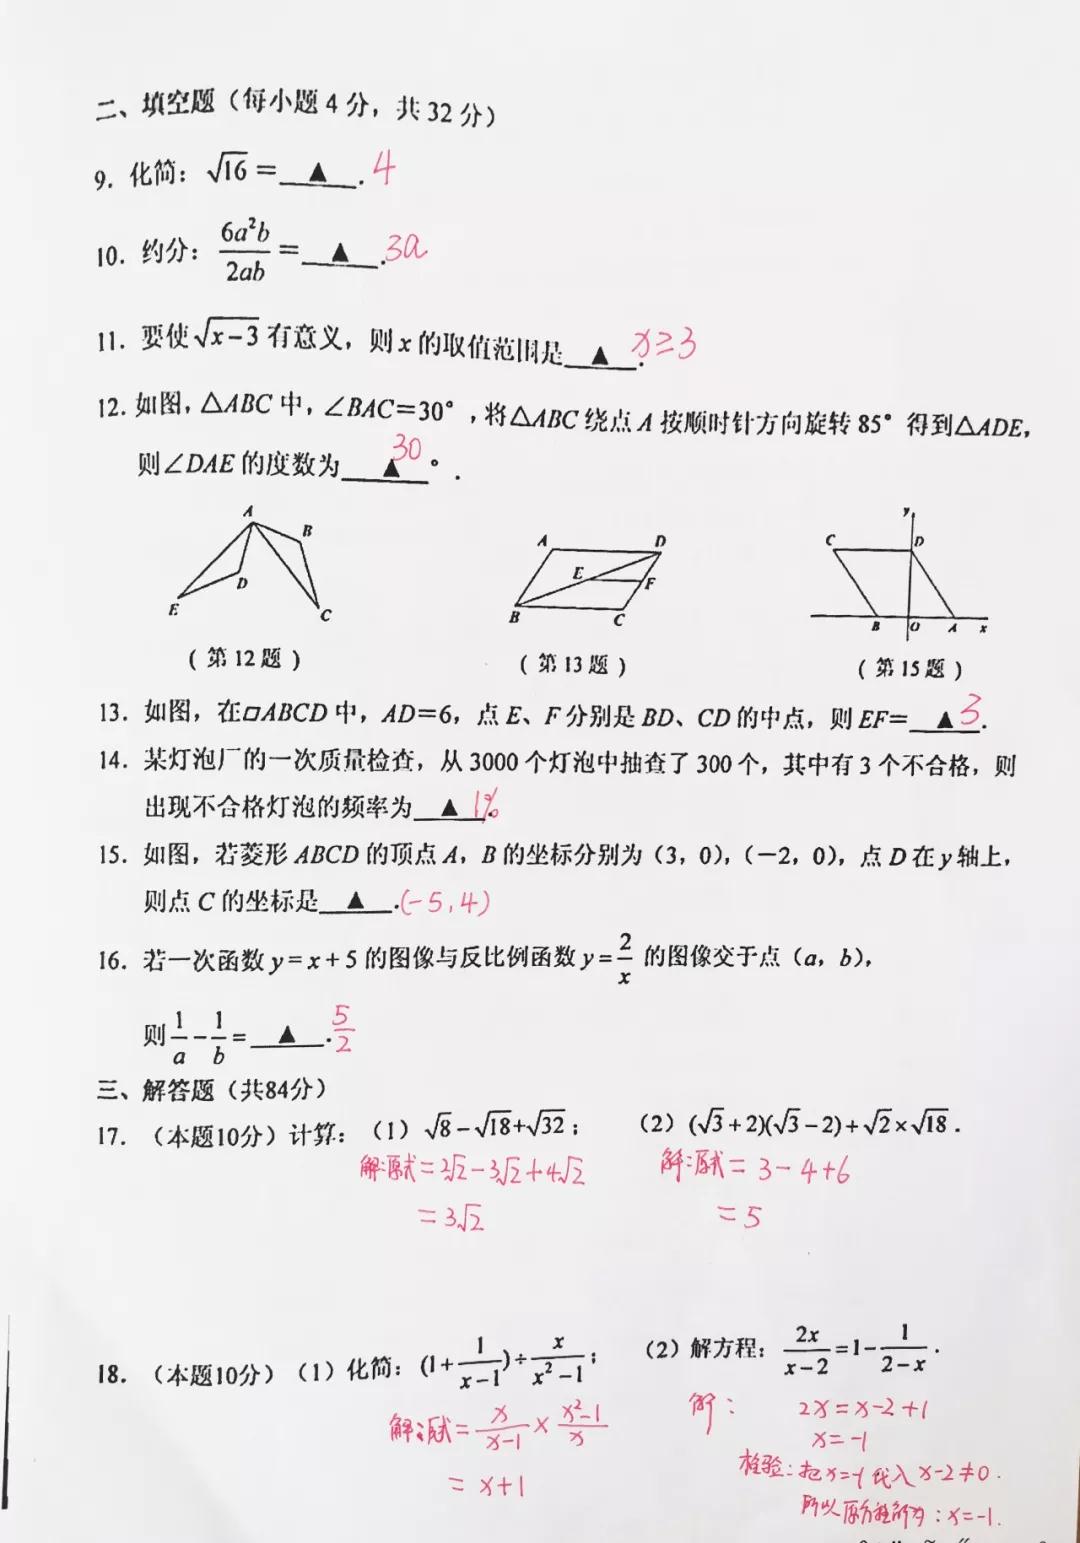 二、填空题（每小题 4 分，共 32 分）
9. 化简：√16 = ▲ . 4
10. 约分：6a²b/2ab = ▲ . 3a
11. 要使√(x-3) 有意义，则 x 的取值范围是 ▲ . x≥3
12. 如图，△ABC 中，∠BAC=30°，将△ABC 绕点 A 按顺时针方向旋转 85° 得到△ADE，
则∠DAE 的度数为 ▲ °. 30
A B D E C
A D E F B C
y C D B O A x
（第 12 题）
（第 13 题）
（第 15 题）
13. 如图，在▱ABCD 中，AD=6，点 E、F 分别是 BD、CD 的中点，则 EF= ▲ . 3
14. 某灯泡厂的一次质量检查，从 3000 个灯泡中抽查了 300 个，其中有 3 个不合格，则
出现不合格灯泡的频率为 ▲ . 1%
15. 如图，若菱形 ABCD 的顶点 A，B 的坐标分别为（3，0），（－2，0），点 D 在 y 轴上，
则点 C 的坐标是 ▲ . (-5,4)
16. 若一次函数 y=x+5 的图像与反比例函数 y=2/x 的图像交于点（a，b），
则 1/a - 1/b = ▲ . 5/2
三、解答题（共84分）
17. （本题10分）计算：（1）√8-√18+√32； （2）(√3+2)(√3-2)+√2×√18 .
解:原式=2√2-3√2+4√2 解:原式= 3-4+6
=3√2 =5
18. （本题10分）（1）化简：(1+1/(x-1))÷x/(x²-1)； （2）解方程：2x/(x-2)=1-1/(2-x) .
解:原式=x/(x-1)×(x²-1)/x 解: 2x=x-2+1
= x+1 x=-1
检验:把x=-1代入 x-2≠0.
所以原方程解为:x=-1.